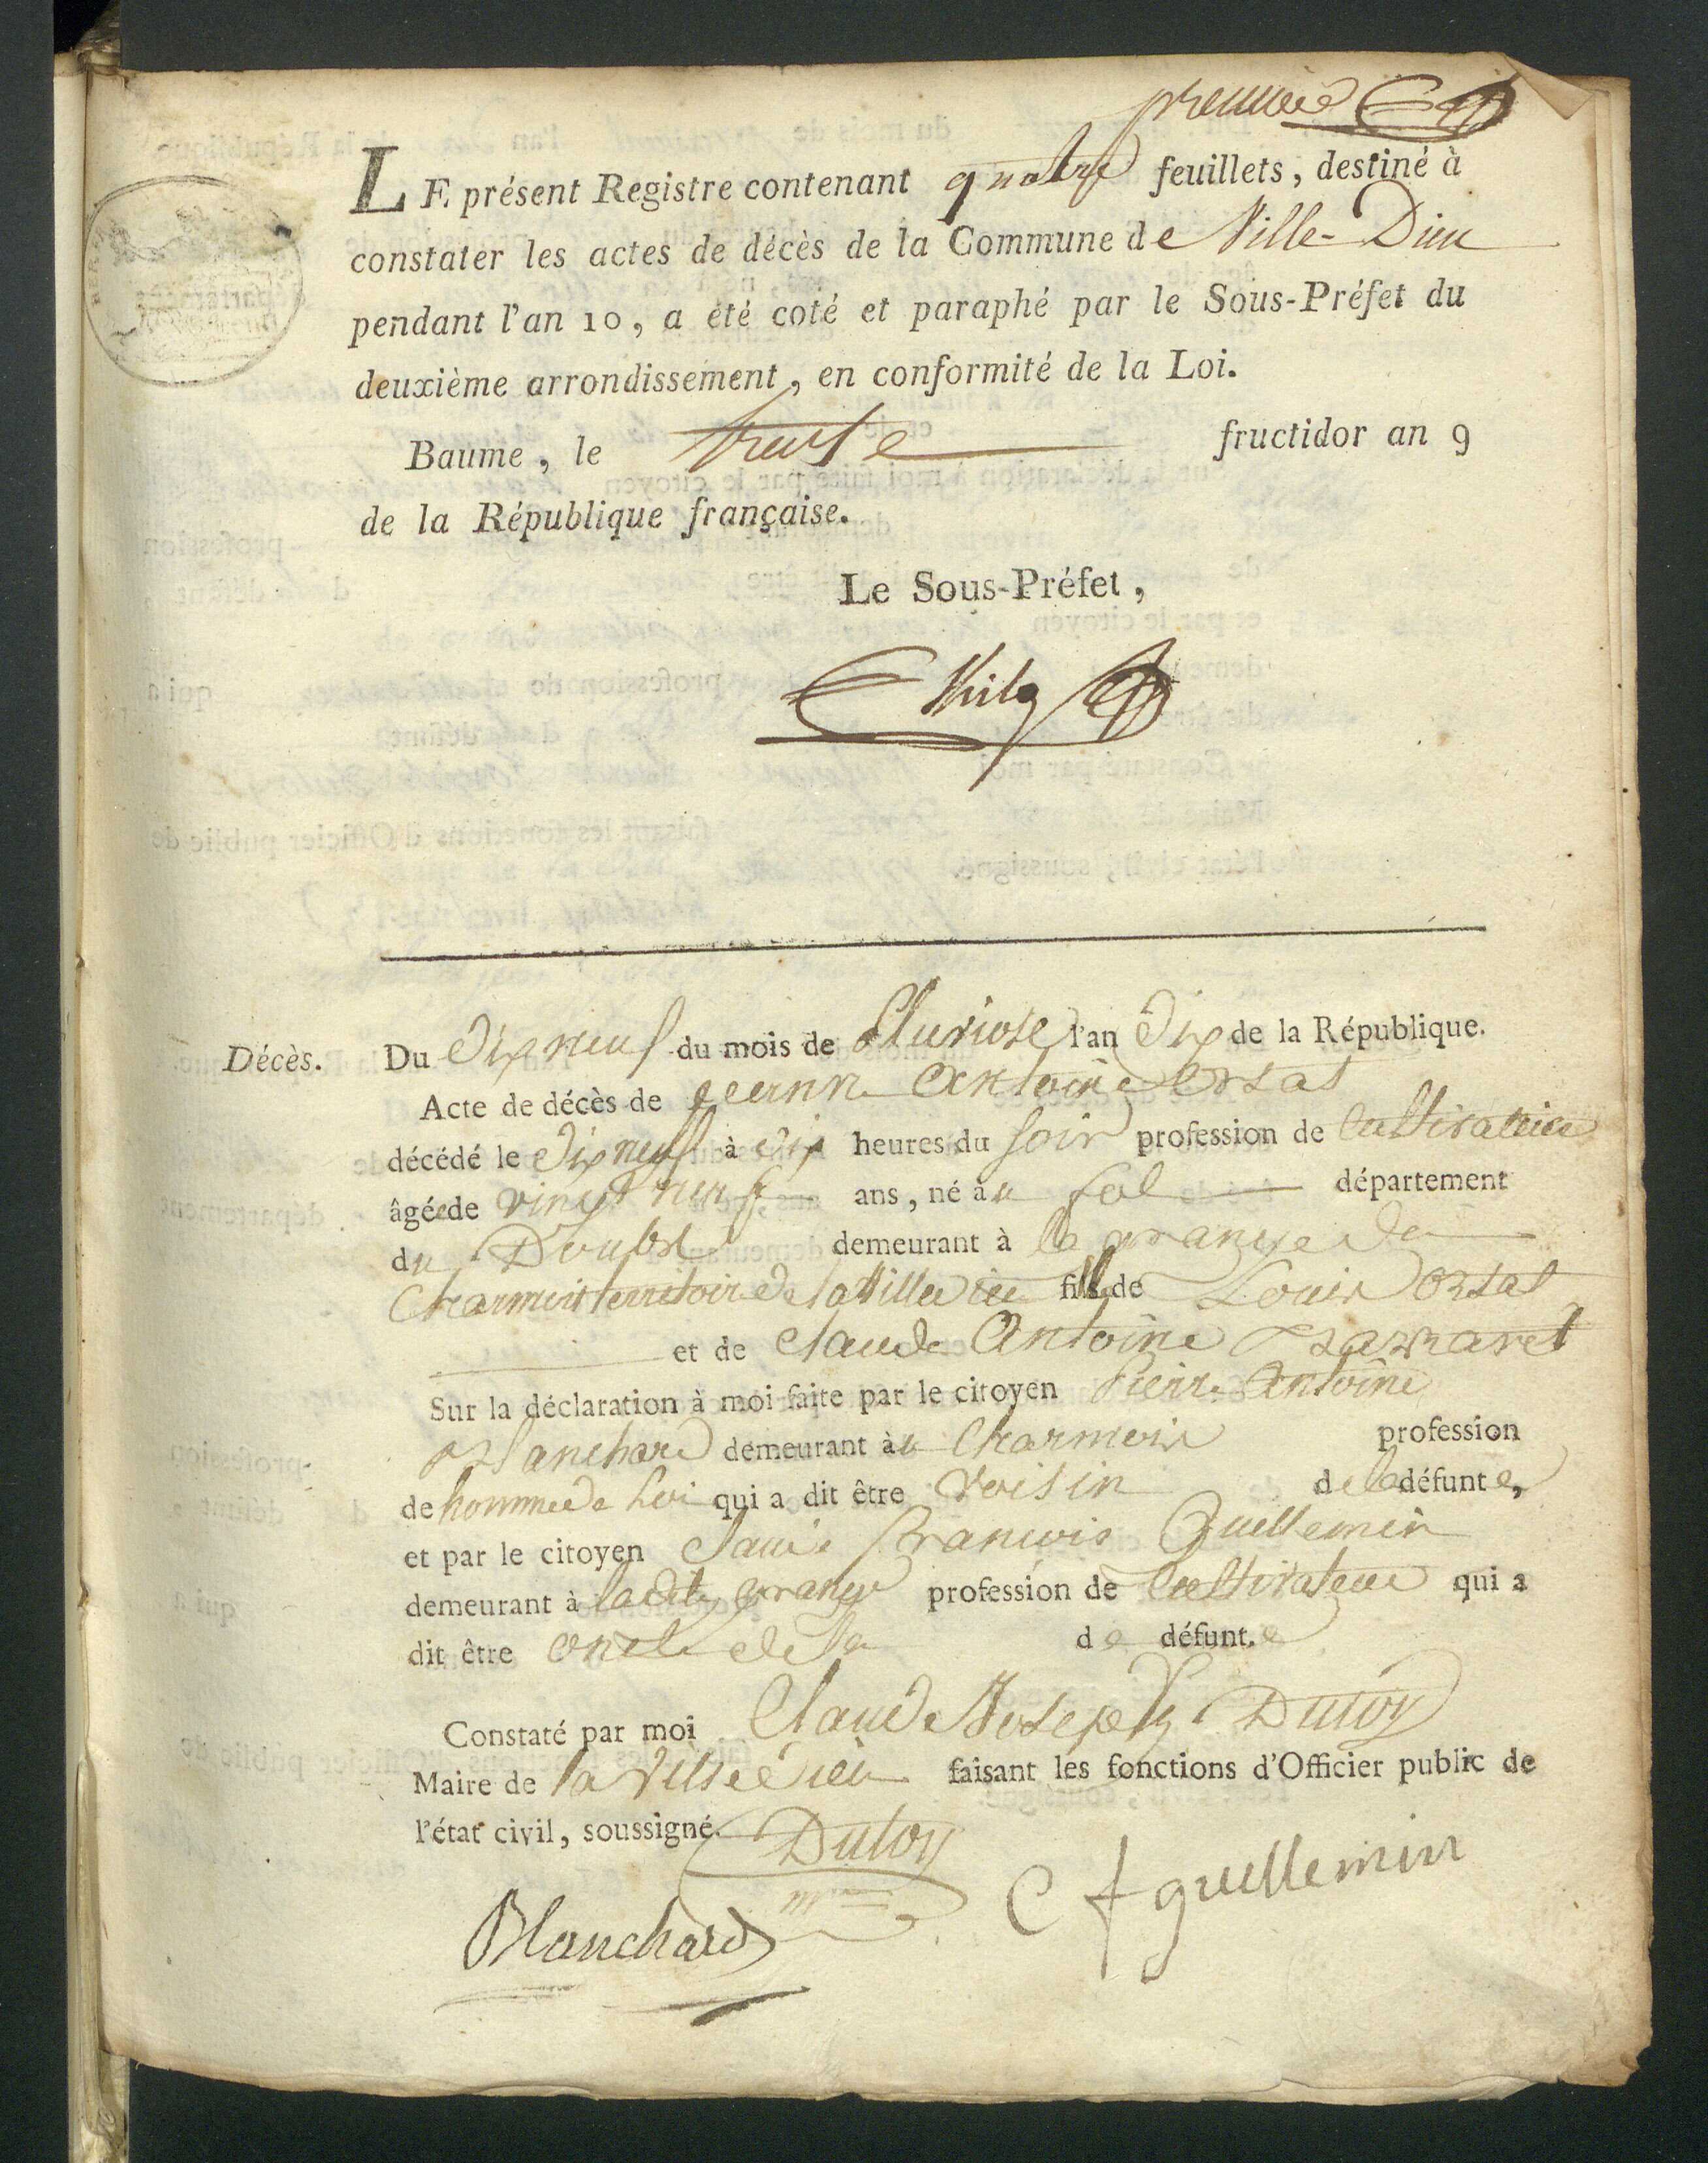 premiere
LE présent Registre contenant quatre feuillets, destiné à
constater les actes de décès de la Commune de Ville-Dieu
pendant l'an 10, a été coté et paraphé par le Sous-Préfet du
deuxième arrondissement, en conformité de la Loi.
Baume, le trente fructidor an 9
de la République française.
Le Sous-Préfet,
Décès.
Du Dix neuf du mois de Pluviose l'an Dix de la République.
Acte de décès de Jeanne Antoine Orsat
décédé le dix neuf à dix heures du soir profession de Cultivatrice
âgée de vingt neuf ans, né au fol département
du Doubs demeurant à la grange du
Charmoit territoire de la Villedieu fille de Louis Orsat
et de Claude Antoine
Sur la déclaration à moi faite par le citoyen Pierre Antoine
Blanchard demeurant au Charmois profession
de homme de Loi qui a dit être Voisin de la défunte,
et par le citoyen Claude François Guillemin
demeurant à ladite grange profession de Cultivateur qui a
dit être oncle de la de défunte
Constaté par moi Claude Joseph Dutoy
Maire de la Villedieu faisant les fonctions d'Officier public de
l'état civil, soussigné. Dutoy
Blanchard
C f guillemin